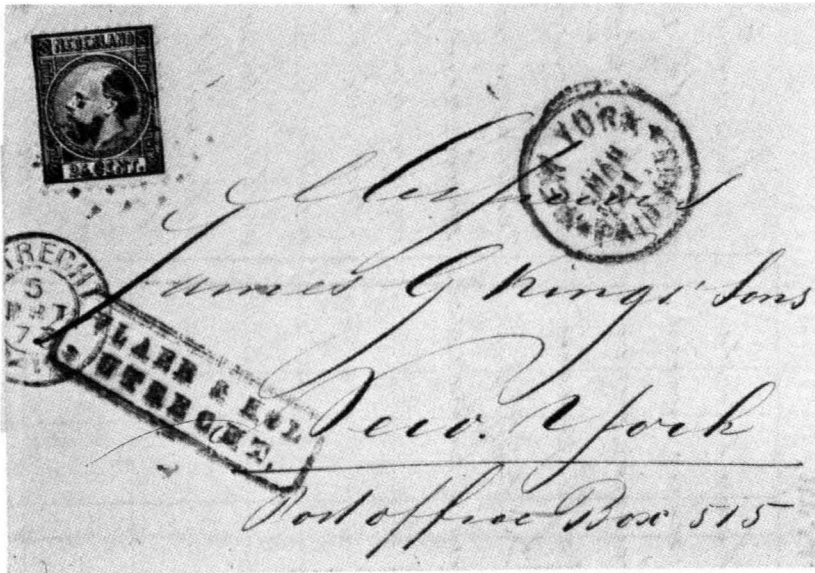 NEDERLAND
25 CENT.
NEW YORK
MAR
21
PAID ALL
Messieurs
James G Kings' Sons
New. York
Post office Box 515
UTRECHT
5
MRT
VLAER & KOL
UTRECHT,